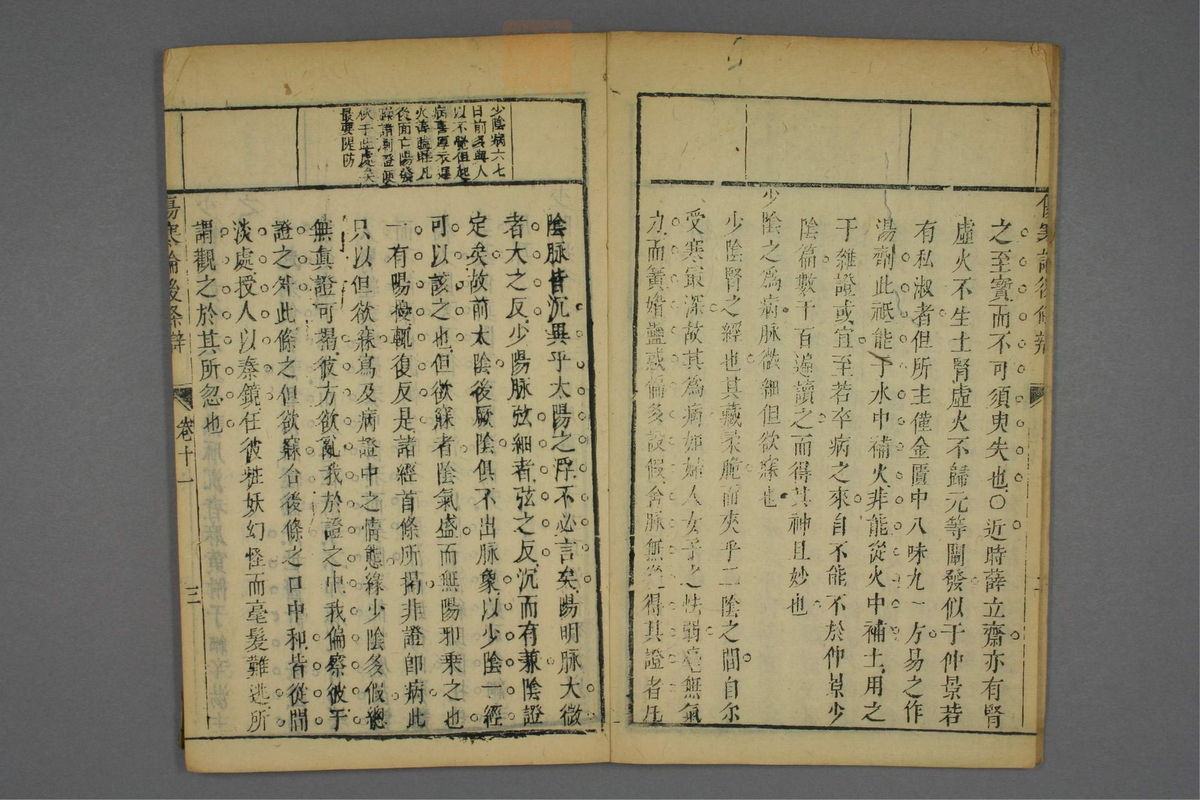 之至寶而不可須臾失也○近時薛立齋亦有腎
虛火不生土腎虛火不歸元等闡發似于仲景若
有私淑者但所主僅金匱中八味丸一方易之作
湯劑此祇能于水中補火非能從火中補土用之
于雜證或宜至若卒病之來自不能不於仲景少
陰篇數千百遍讀之而得其神且妙也
少陰之為病脉微細但欲寐也
少陰腎之經也其藏最脆而夾乎二陰之間自尔
受寒最深故其為病如婦人女子之怯弱毫無氣
力而簧婧蠱惑偏多設假舍脉無從得其證者在
少陰病六七
日前多與人
以不覺但起
病喜厚衣近
火善瞌睡凡
後面亡陽發
躁諸劇證便
伏于此處矣
最要隄防
陰脉皆沉異乎太陽之浮不必言矣陽明脉大微
者大之反少陽脉弦細者弦之反沉而有兼陰證
定矣故前太陰後厥陰俱不出脉象以少陰一經
可以該之也但欲寐者陰氣盛而無陽邪乘之也
一有陽擾輒復反是諸經首條所揭非證即病此
只以但欲寐寫及病證中之情態緣少陰多假總
無真證可揭彼方欲亂我於證之中我偏察彼于
證之外此條之但欲寐合後條之口中和皆從閒
淡處授人以秦鏡任彼粧妖幻怪而毫髮難逃所
謂觀之於其所忽也
傷寒論後條辯
卷十一
三